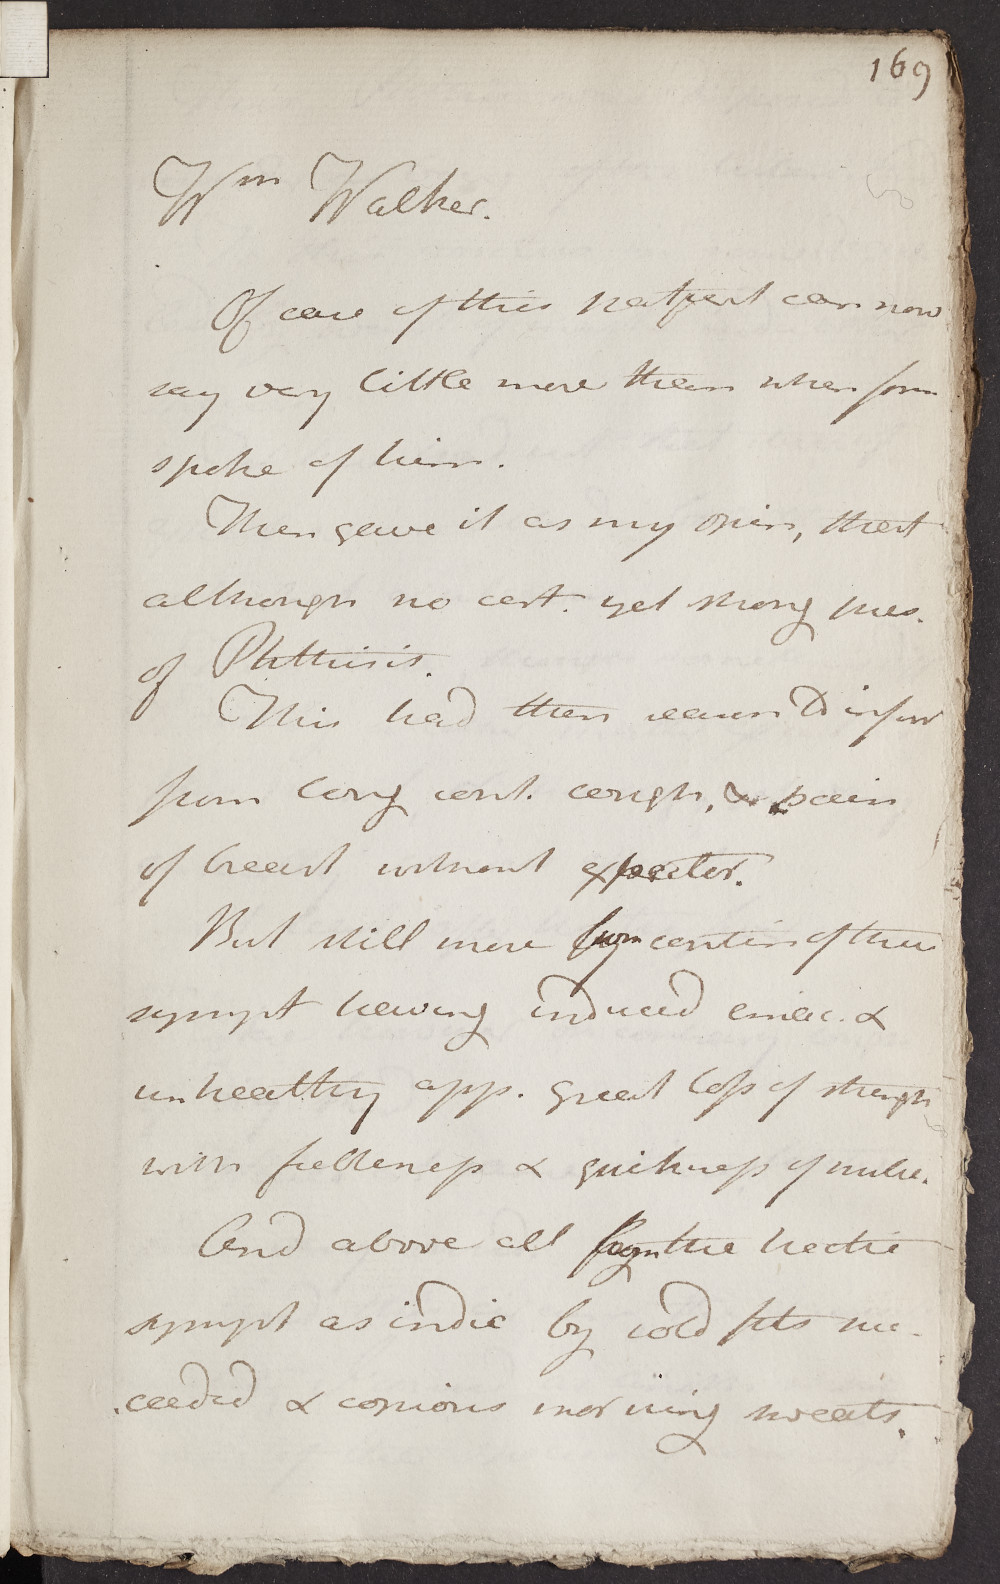 169
Wm Walker.
Of case of this patient can now
say very little more than when form
spoke of him.
Then gave it as my opin, that
although no cert. yet strong pres.
of Phthisis.
This had then reason to infer
from long cont. cough, & pain
of breast without expector.
But still more from contin of these
sympt having induced emac. &
unhealthy app. great loss of strength
with feebleness & quickness of pulse.
And above all from the hectic
sympt as indic by cold fits suc-
ceeded & copious morning sweats.